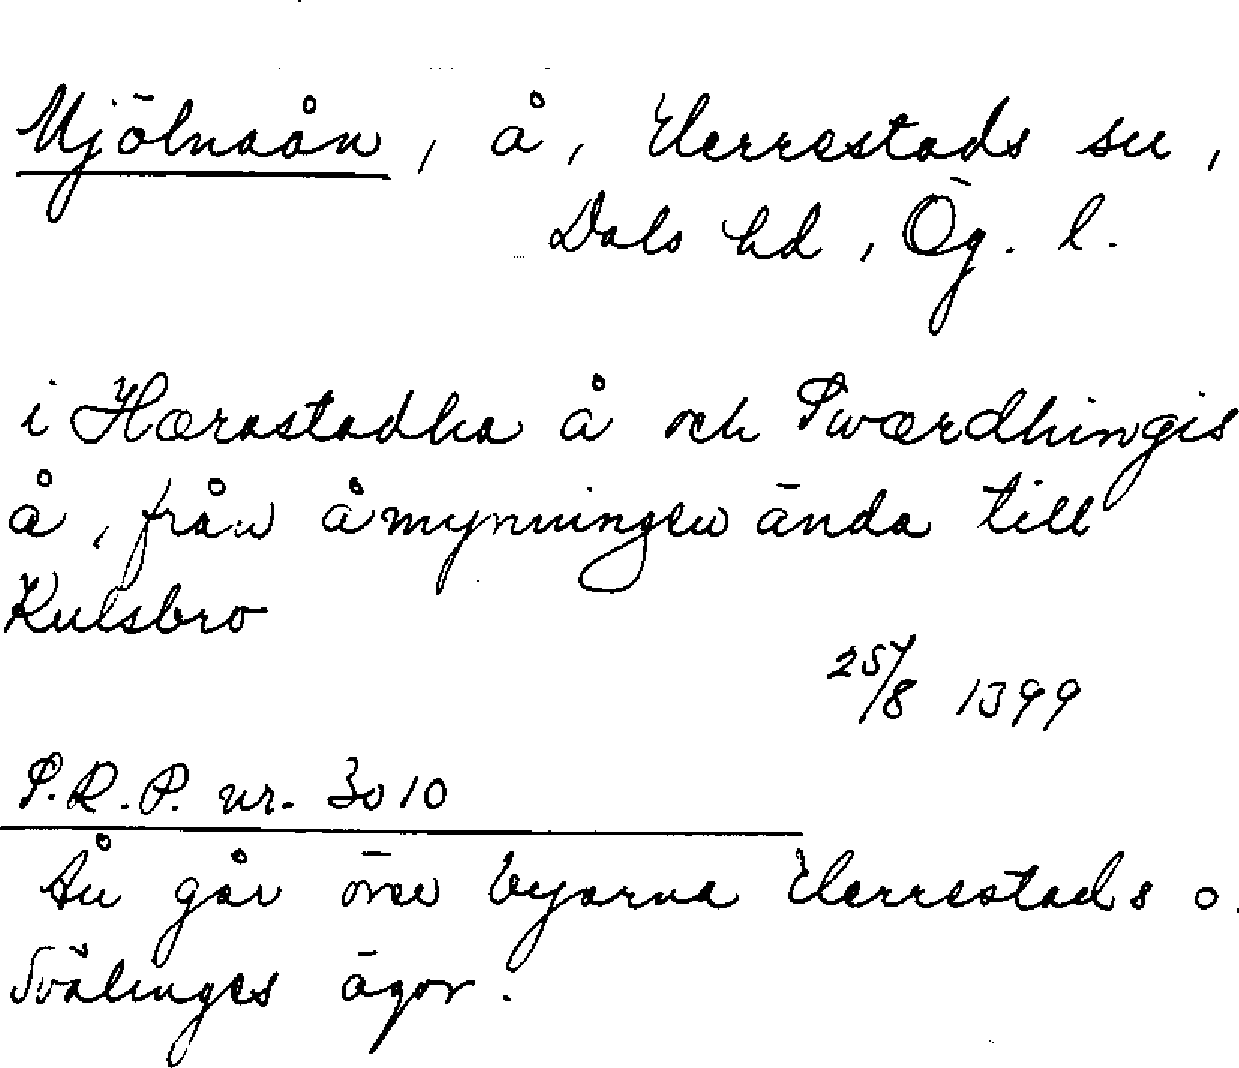 Mjölnaån, å, Herrestads sn,
Dals hd, Ög. l.
i Hærastadha å och Swærdhingis
å, från åmynningen ända till
Kulsbro
25/8 1399
S.R.P. nr. 3010
Ån går över byarna Herrestads o.
Svälinges ägor.